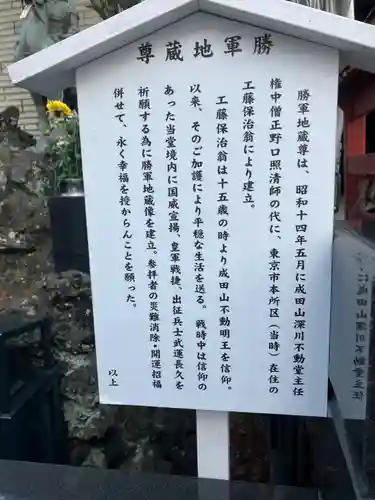 勝軍地蔵尊
勝軍地蔵尊は、昭和十四年五月に成田山深川不動堂主任
権中僧正野口照清師の代に、東京市本所区(当時)在住の
工藤保治翁により建立。
工藤保治翁は十五歳の時より成田山不動明王を信仰。
以来、そのご加護により平穏な生活を送る。戦時中は信仰の
あった当堂境内に国威宣揚、皇軍戦捷、出征兵士武運長久を
祈願する為に勝軍地蔵像を建立。参拝者の災難消除・開運招福
併せて、永く幸福を授からんことを願った。
以上
に成田山深